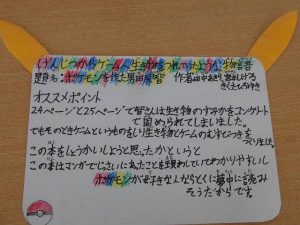 げんじつからゲームへ生き物をつれてったような物語
題名:ポケモンを作った男田尻智 作者田中おきし宮本しげる
きくたひろゆき
オススメポイント
24ページと25ページで智さんは生き物のすみかをコンクリート
で固められてしまいました。
でもそのときゲームというものをしり生き物とゲームのむすびつきを
つくりました。
この本をしょうかいしようと思ったかというと
この本はマンガでじっさいにあったことを生現れていてわかりやすいし
ポケモンが好きな人ならとくに夢中に読み
そうだからです。